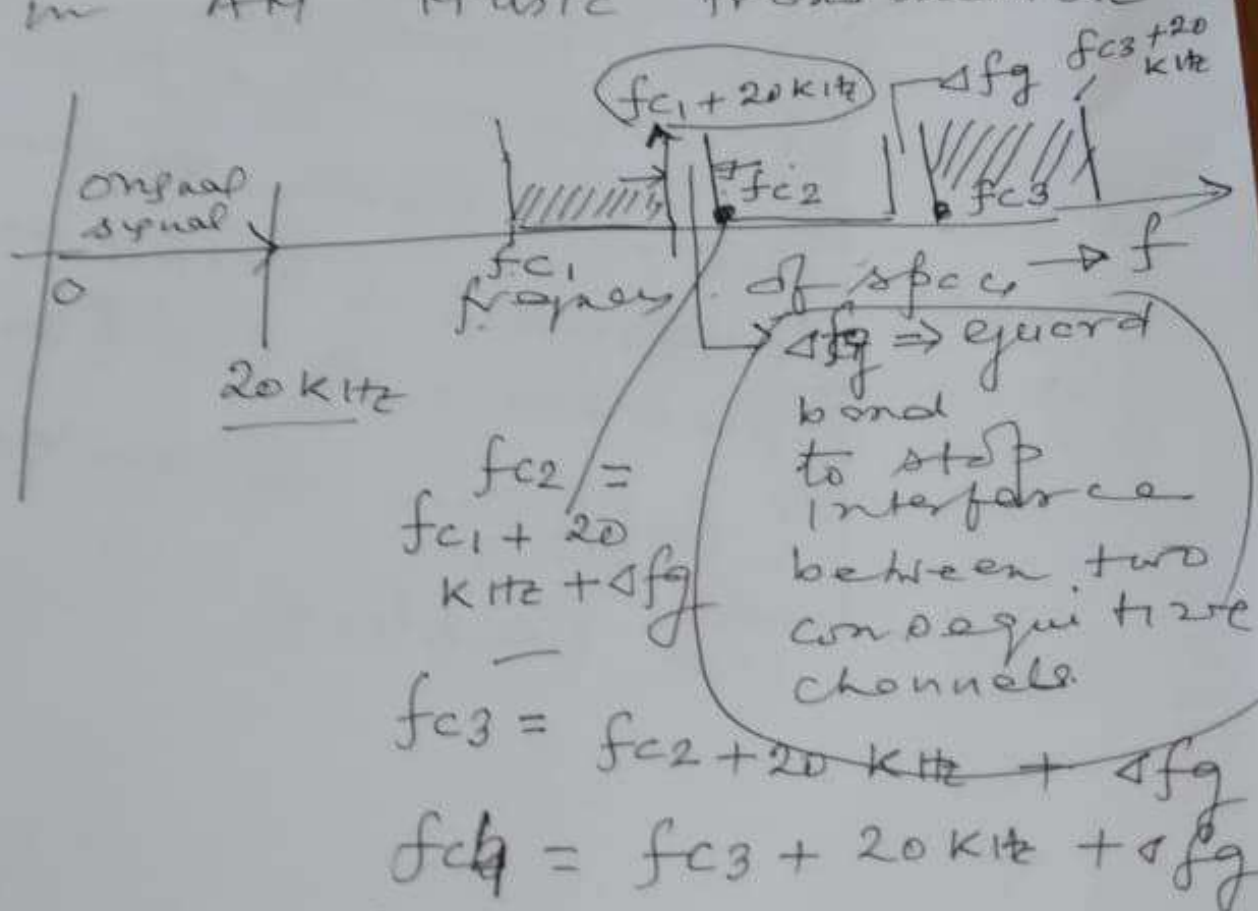 in AM Music
fc1 + 20 KHz
Δfg
fc3 +20 KHz
signal
fc2
fc3
0
fc1
→ f
20 KHz
Δfg ⇒ guard
bond
to stop
interfarce
between two
consequitive
channels.
fc2 =
fc1 + 20
KHz + Δfg
fc3 = fc2 + 20 KHz + Δfg
fc4 = fc3 + 20 KHz + Δfg